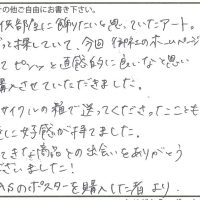 の他ご自由にお書き下さい。
低部屋に飾りたいと思っていたアート。
っと探していて、今回 御社のホームページ
てピンッと直感的に良いなと思い
購入させていただきました。
サイクルの箱で送ってくださったことも
に好感が持てました。
てきな商品との出会いをありがとう
ざいました!
のポスターを購入した者 より.